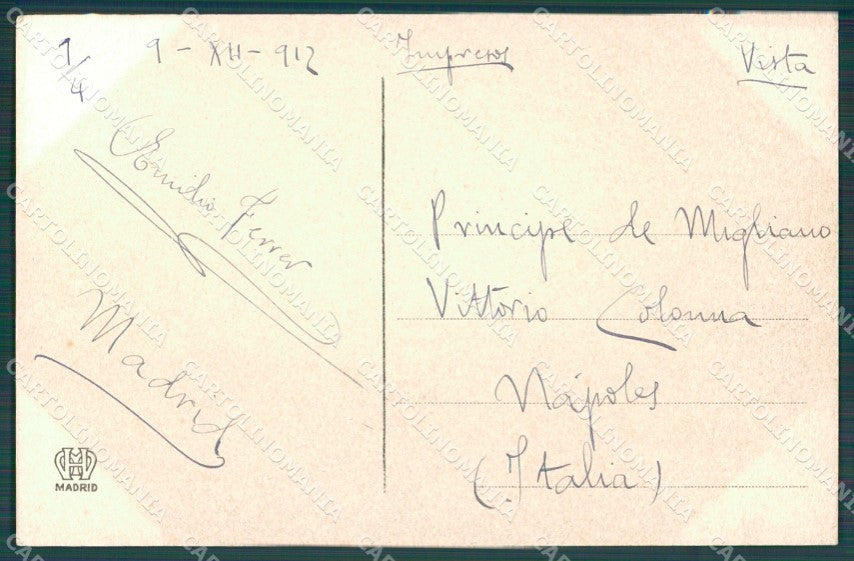 1/4
9-XII-912
Impresos
Vista
Emilio Ferrer
Madrid
Principe de Migliano
Vittorio Colonna
Nápoles
(Italia)
MADRID
CARTOLINOMANIA